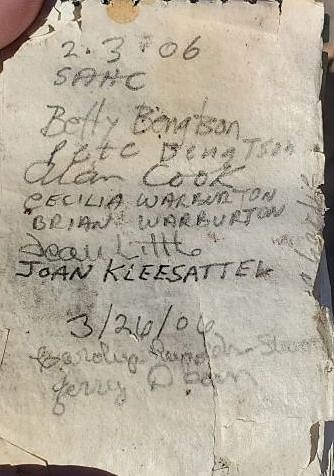 2.3.06
SAHC
Betty Bengtson
Pete Bengtson
Alan Cook
CECILIA WARBURTON
BRIAN WARBURTON
Jean Little
JOAN KLEESATTEL
3/26/06
Carolyn
Jerry Doan